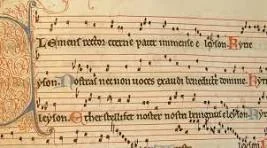 Clemens rector eterne pater immense eleyson. Kyrie
eyson. Nostras nec non voces exaudi benedicte domine. Kyrie
leyson. Ether stellifer noster nostri benignus eleyson. Kyrie